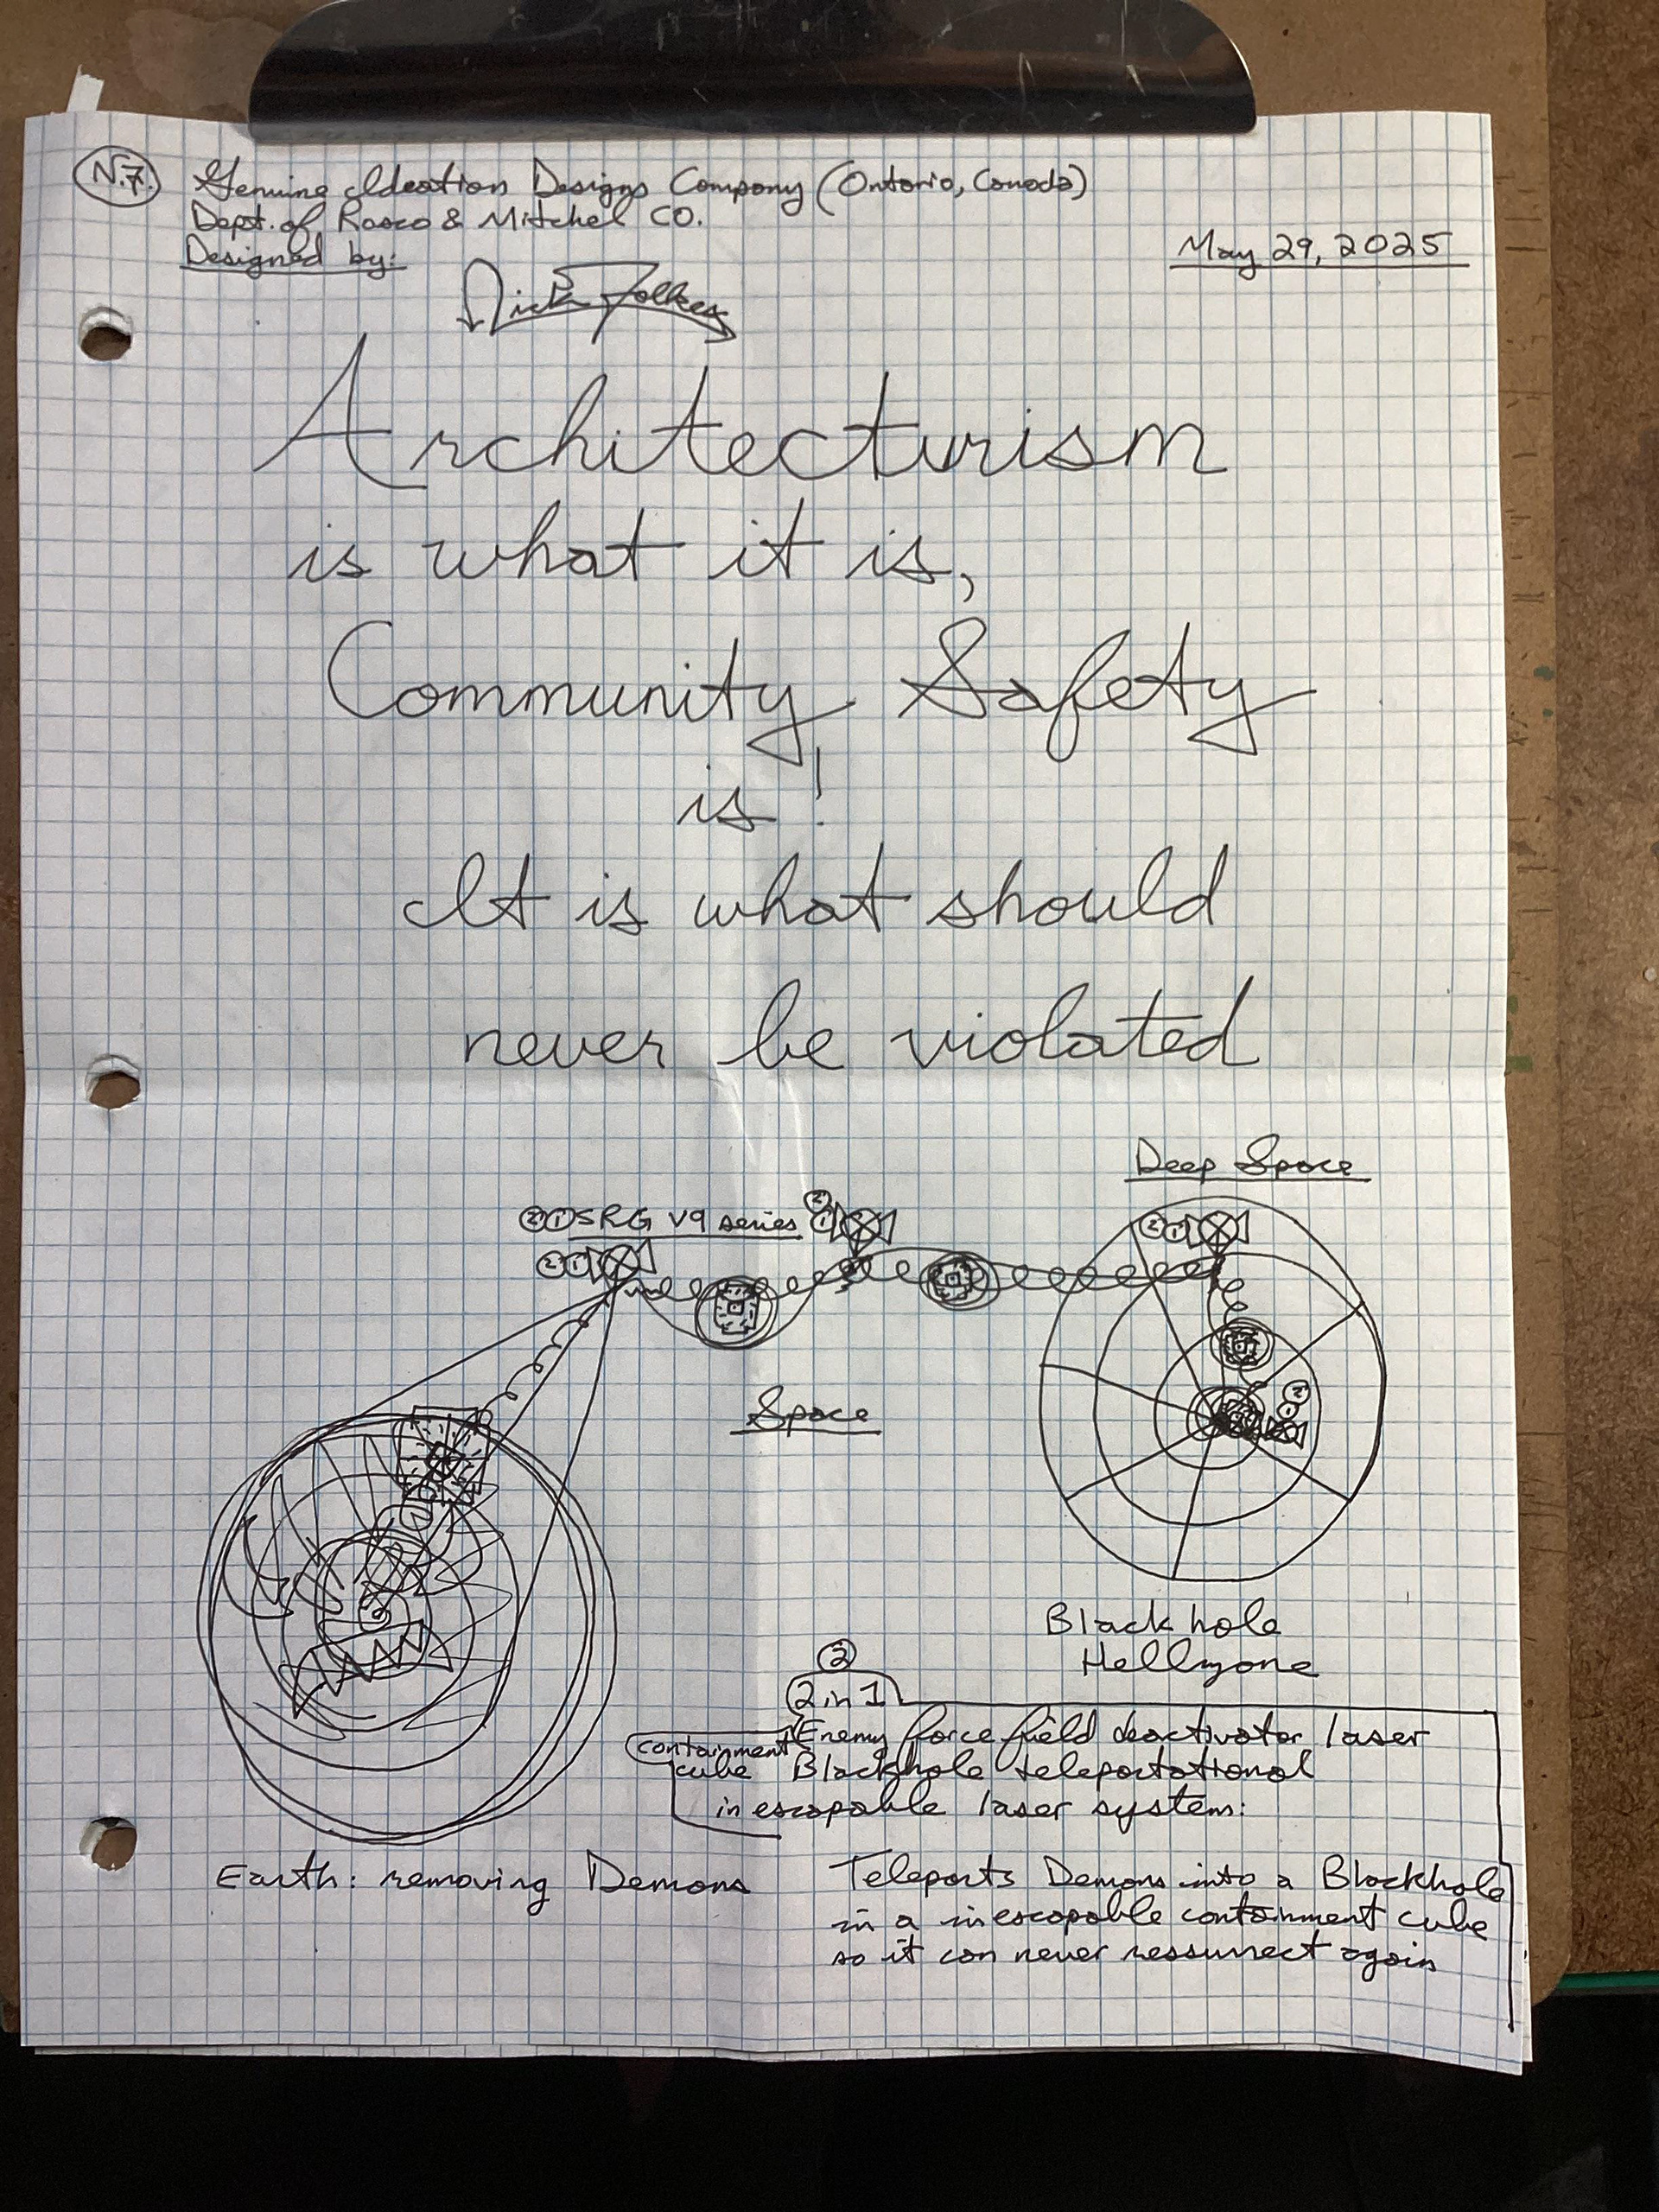 N.F. Genuine Ideation Designs Company (Ontario, Canada)
Dept. of Rosco & Mitchel CO.
Designed by:
May 29, 2025
Nick Folkes
Architecturism
is what it is,
Community Safety
is!
It is what should
never be violated
Deep Space
2 1 SRG V9 series 2 1
2 1
2 1
Space
2 1
Blackhole
Hellzone
2
2 in 1
Enemy force field deactivator laser
containment cube
Blackhole teleportational
inescapable laser system:
Earth: removing Demons
Teleports Demons into a Blackhole
in a inescapable containment cube
so it can never ressurrect again